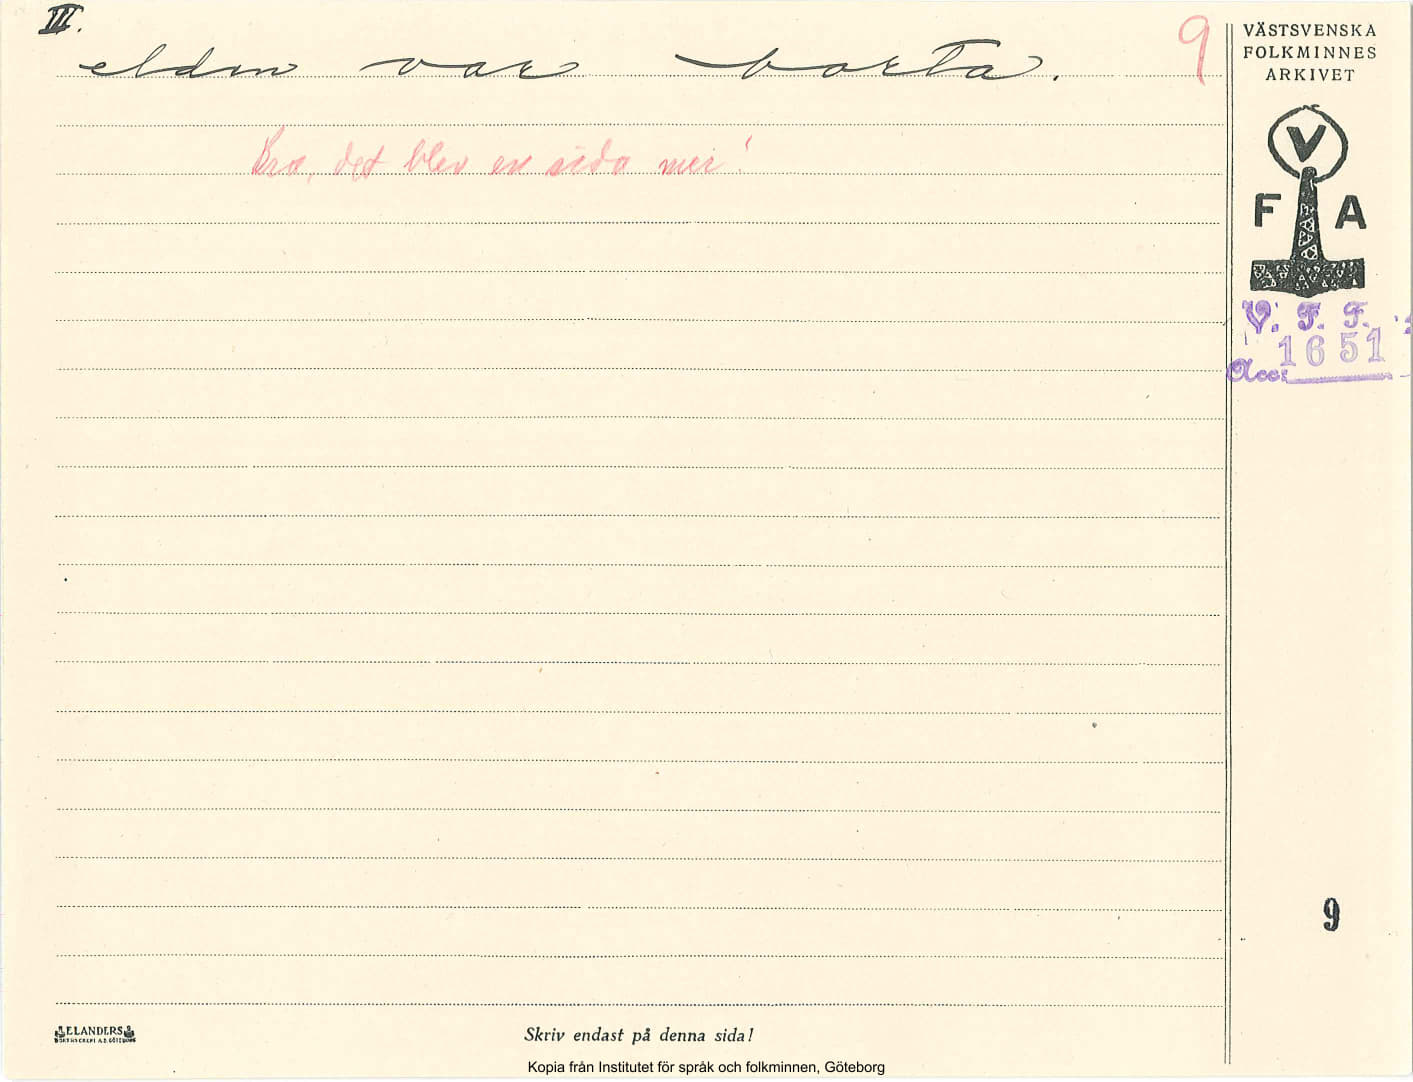 III.
elden var borta.
9
Bra, det blev en sida mer!
VÄSTSVENSKA
FOLKMINNES
ARKIVET
V
F A
V. F. F.
Acc: 1651
9
ELANDERS
BOKTRYCKERI A.B. GÖTEBORG
Skriv endast på denna sida!
Kopia från Institutet för språk och folkminnen, Göteborg